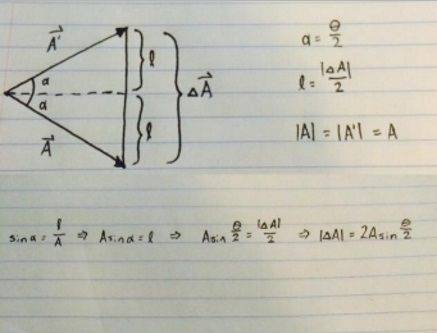 A⃗' α = θ/2
α
l
ΔA⃗ l = |ΔA|/2
α
l
A⃗ |A| = |A'| = A
sin α = l/A ⇒ A sin α = l ⇒ A sin θ/2 = |ΔA|/2 ⇒ |ΔA| = 2A sin θ/2